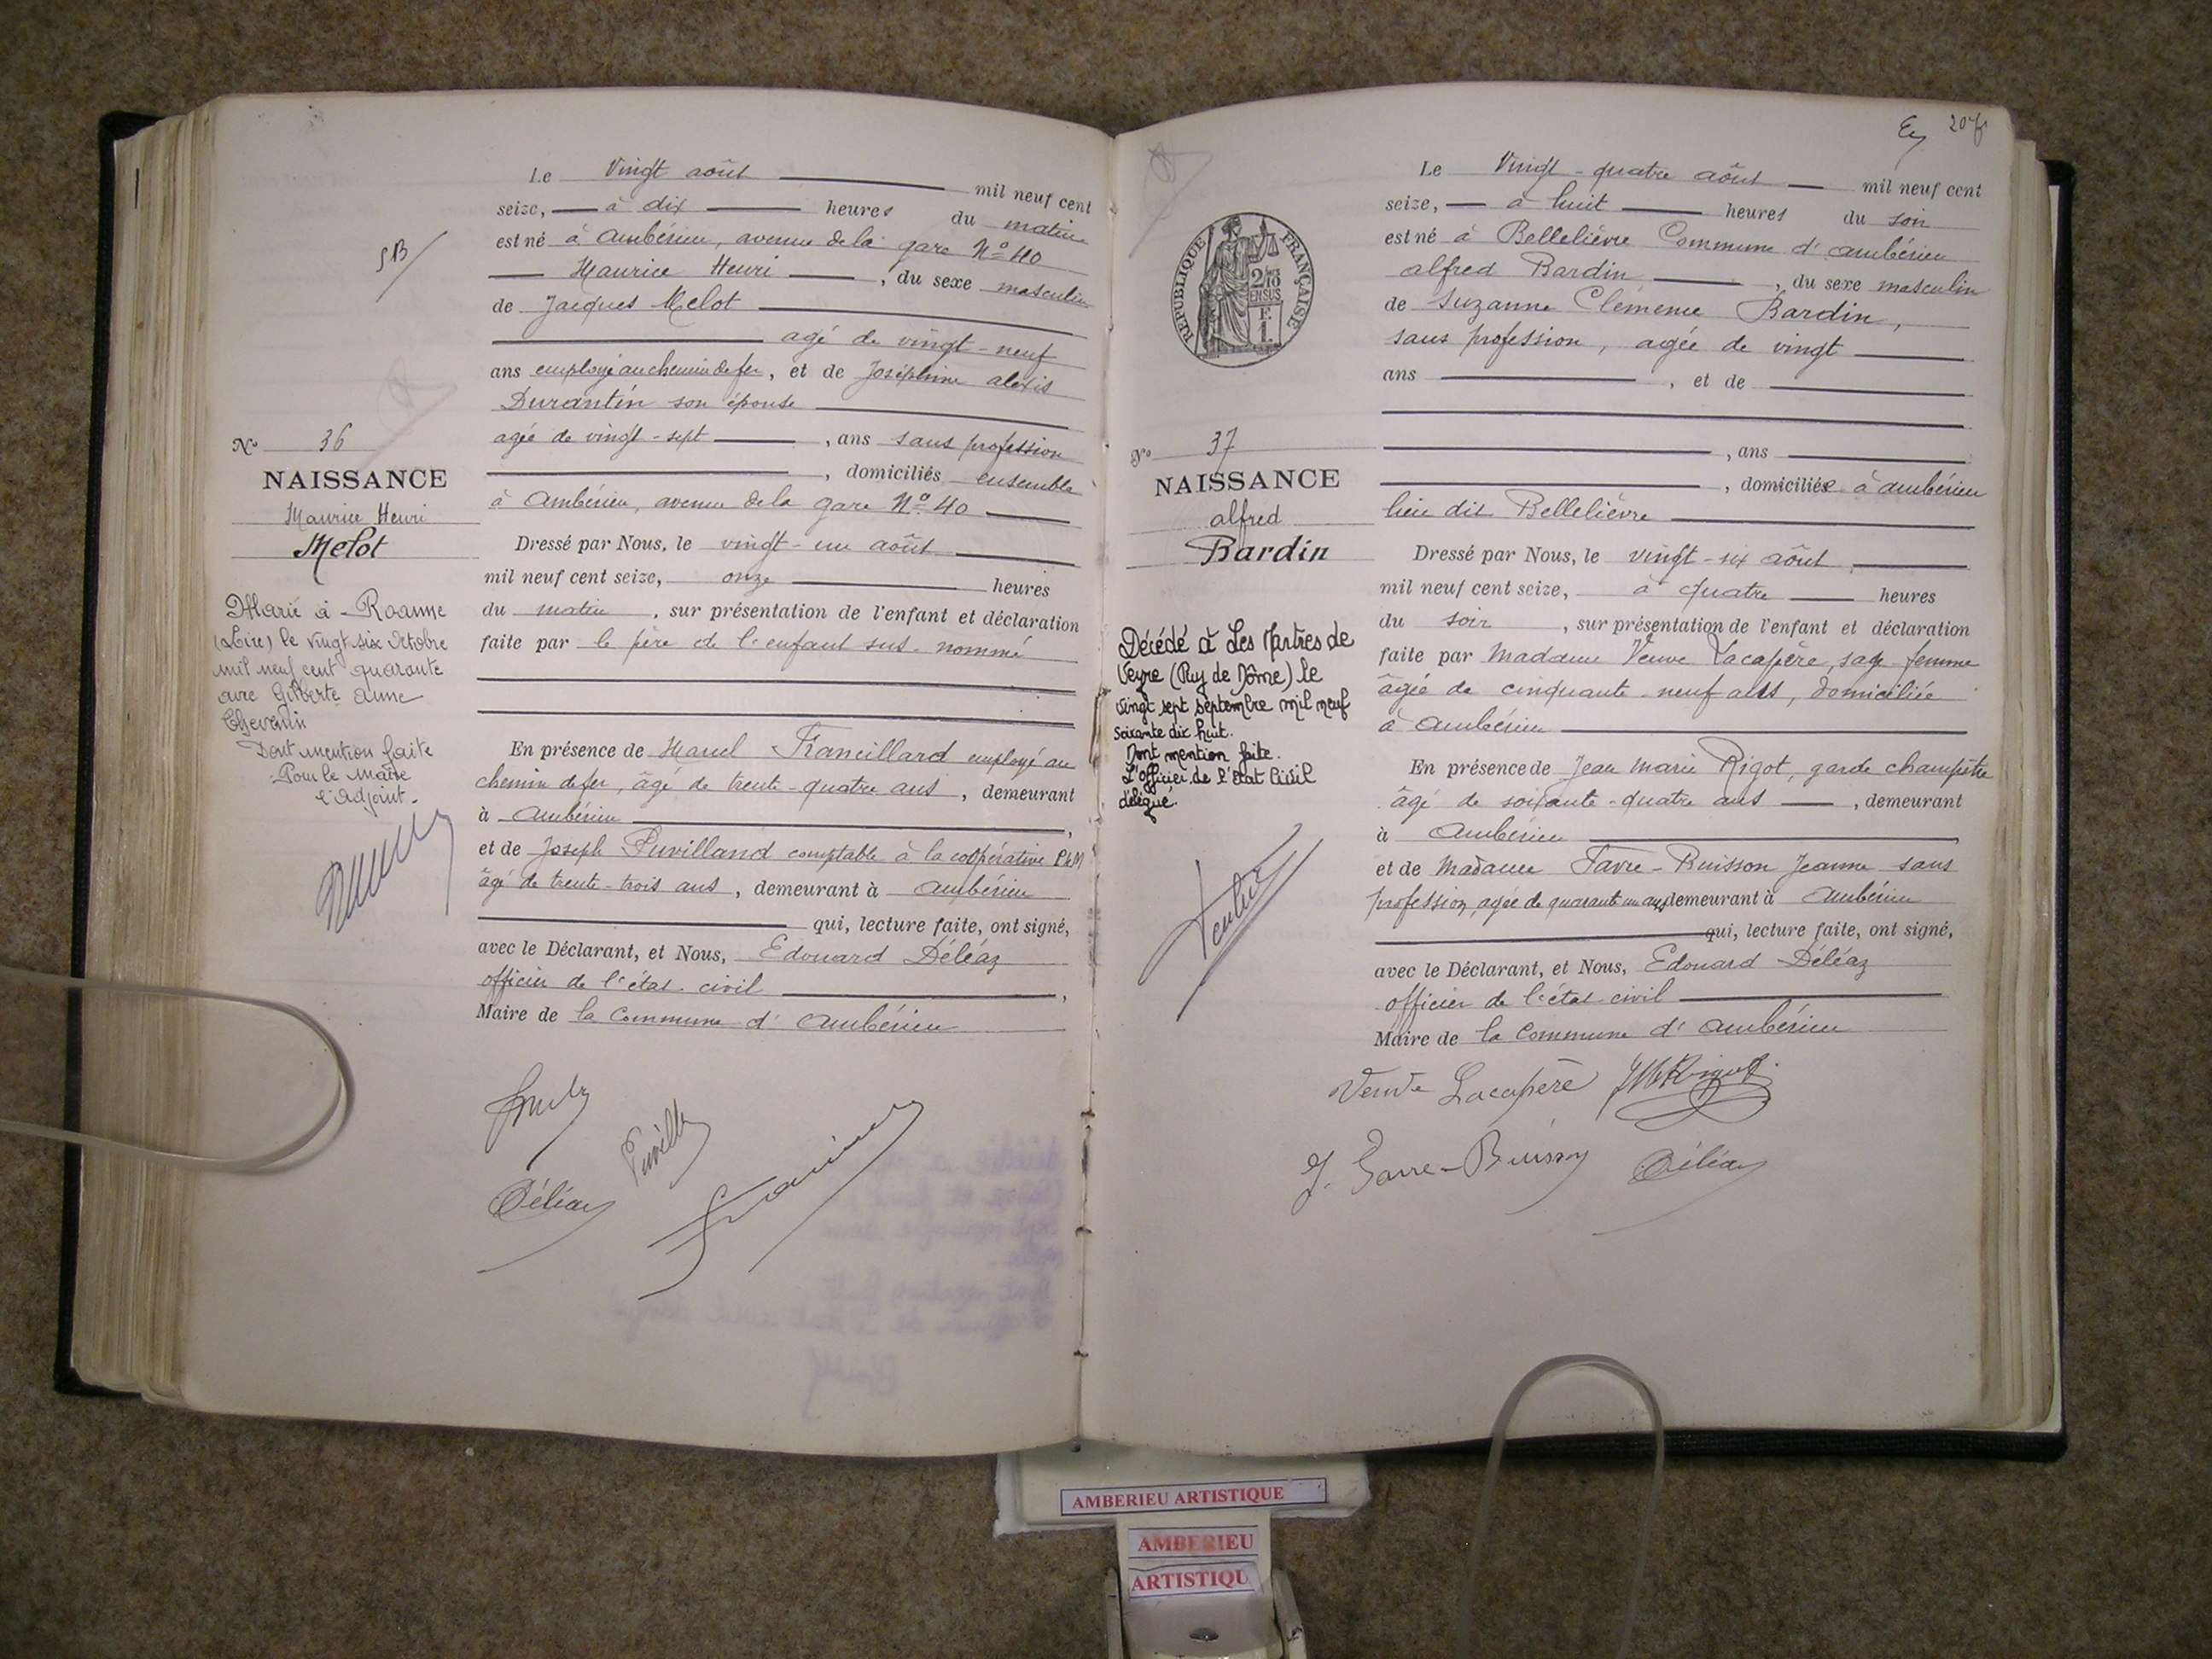 SB
Le Vingt août mil neuf cent
seize, à dix heures du matin
est né à Ambérieu, avenue de la gare N° 40
Maurice Henri, du sexe masculin
de Jacques Melot
agé de vingt-neuf
ans employé au chemin de fer, et de Joséphine alexis
Durantin son épouse
agée de vingt-sept, ans sans profession
, domiciliés ensemble
à Ambérieu, avenue de la gare N° 40
Dressé par Nous, le vingt-un août
mil neuf cent seize, onze heures
du matin, sur présentation de l'enfant et déclaration
faite par le père de l'enfant sus-nommé
En présence de Marcel Francillard employé au
chemin de fer, âgé de trente-quatre ans, demeurant
à Ambérieu,
et de Joseph Puvilland comptable à la coopérative PLM
âgé de trente-trois ans, demeurant à Ambérieu
qui, lecture faite, ont signé,
avec le Déclarant, et Nous, Edouard Déléaz
officier de l'état civil,
Maire de la Commune d'Ambérieu
Déléaz
N° 36
NAISSANCE
Maurice Henri
Melot
Marié à Roanne
(Loire) le vingt six Octobre
mil neuf cent quarante
avec Gilberte Anne
Chevenin
Dont mention faite
Pour le Maire
l'Adjoint.
RÉPUBLIQUE FRANÇAISE
2/10
EN SUS
F.
1.
N° 37
NAISSANCE
alfred
Bardin
Décédé à Les Martres de
Veyre (Puy de Dôme) le
vingt sept septembre mil neuf
soixante dix huit.
Dont mention faite.
L'officier de l'Etat Civil
délégué.
Le Vingt-quatre août mil neuf cent
seize, à huit heures du soir
est né à Bellelièvre Commune d'ambérieu
alfred Bardin, du sexe masculin
de Suzanne Clémence Bardin,
sans profession, agée de vingt
ans, et de
, ans
, domiciliée à ambérieu
lieu dit Bellelièvre
Dressé par Nous, le vingt-six août
mil neuf cent seize, à quatre heures
du soir, sur présentation de l'enfant et déclaration
faite par Madame Veuve Lacapère, sage-femme
âgée de cinquante-neuf ans, domiciliée
à Ambérieu
En présence de Jean Marie Rigot, garde champêtre
âgé de soixante-quatre ans, demeurant
à Ambérieu
et de Madame Favre-Buisson Jeanne sans
profession, agée de quarante un ans demeurant à Ambérieu
qui, lecture faite, ont signé,
avec le Déclarant, et Nous, Edouard Déléaz
officier de l'état civil
Maire de la Commune d'Ambérieu
Veuve Lacapère JM Rigot
J. Favre-Buisson Déléaz
AMBERIEU ARTISTIQUE
AMBERIEU
ARTISTIQU